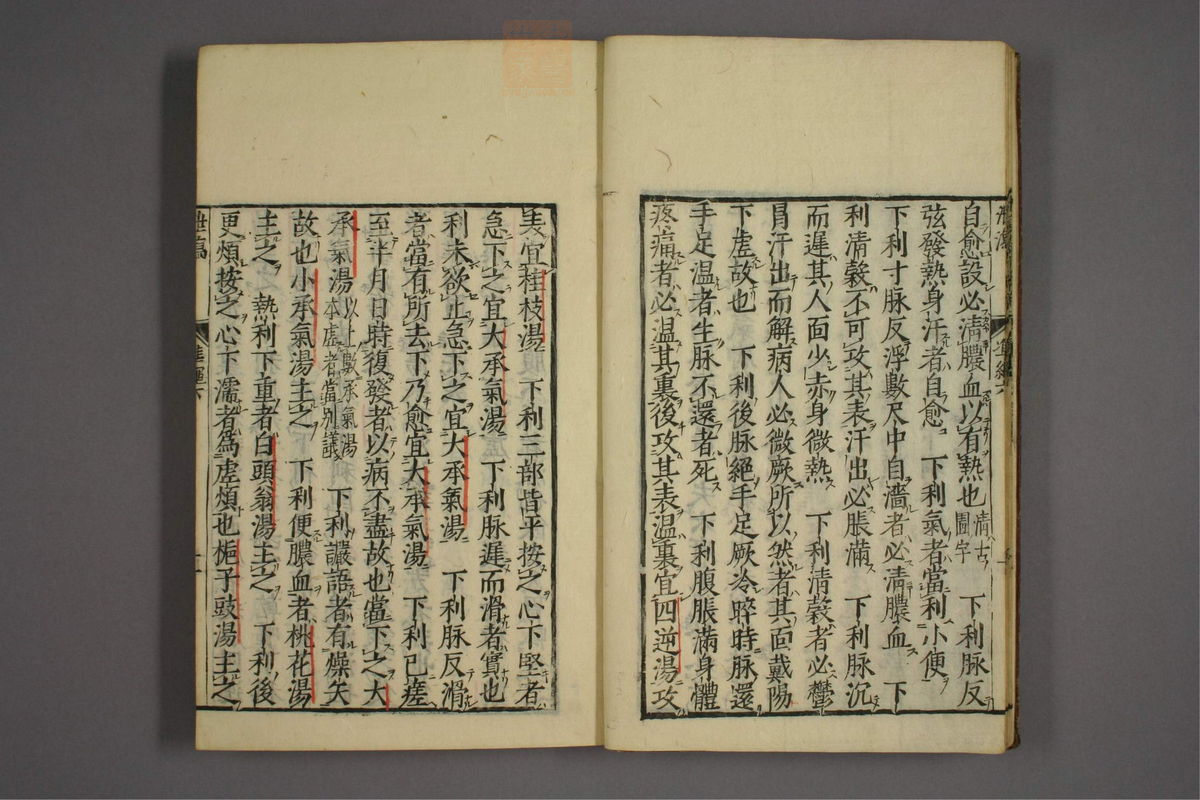 自愈設必清膿血以有熱也清古圊字 下利脉反
弦發熱身汗者自愈 下利氣者當利小便
下利寸脉反浮數尺中自濇者必清膿血 下
利清穀不可攻其表汗出必脹滿 下利脉沉
而遲其人面少赤身微熱 下利清穀者必鬱
冒汗出而解病人必微厥所以然者其面戴陽
下虛故也 下利後脉絕手足厥冷晬時脉還
手足溫者生脉不還者死 下利腹脹滿身體
疼痛者必溫其裏後攻其表溫裏宜四逆湯攻
表宜桂枝湯 下利三部皆平按之心下堅者
急下之宜大承氣湯 下利脉遲而滑者實也
利未欲止急下之宜大承氣湯 下利脉反滑
者當有所去下乃愈宜大承氣湯 下利已瘥
至半月日時復發者以病不盡故也當下之大
承氣湯以上數承氣湯本虛者當別議 下利讝語者有燥矢
故也小承氣湯主之 下利便膿血者桃花湯
主之 熱利下重者白頭翁湯主之 下利後
更煩按之心下濡者為虛煩也梔子豉湯主之